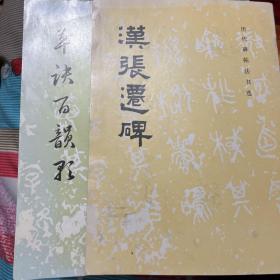 草诀百韵歌
漢張遷碑
历代碑帖法书选